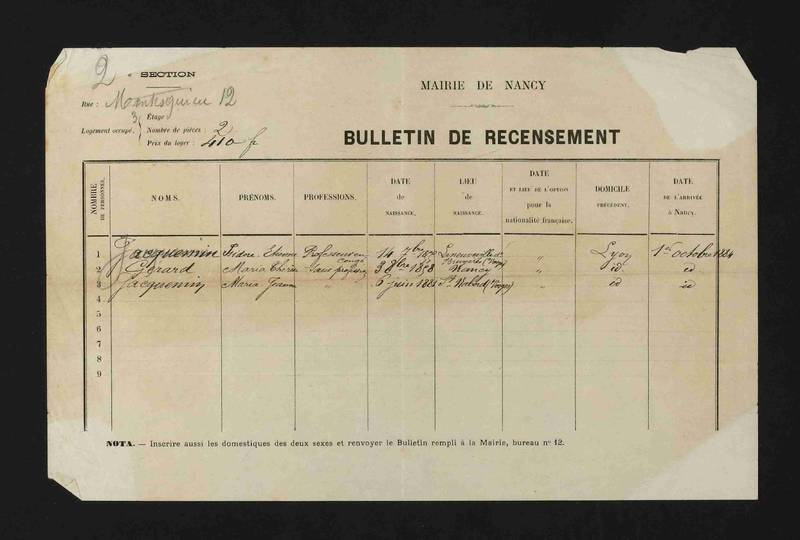 2 SECTION
MAIRIE DE NANCY
Rue : Montesquieu 12
3 Étage
Logement occupé. Nombre de pièces : 2
Prix du loyer : 410 f
BULLETIN DE RECENSEMENT
NOMBRE DE PERSONNES. NOMS. PRÉNOMS. PROFESSIONS. DATE de NAISSANCE. LIEU de NAISSANCE. DATE ET LIEU DE L'OPTION pour la nationalité française. DOMICILE PRÉCÉDENT. DATE DE L'ARRIVÉE à Nancy.
1 Jacquemin Isidore Etienne Professeur en Congé 14 7bre Bruyères (Vosges) " Lyon 1er octobre 1884
2 Gérard Maria Sans profession 3 8bre 1858 Nancy " id id
3 Jacquemin Maria " 6 juin 1881 (Vosges) " id id
4
5
6
7
8
9
NOTA. — Inscrire aussi les domestiques des deux sexes et renvoyer le Bulletin rempli à la Mairie, bureau no 12.